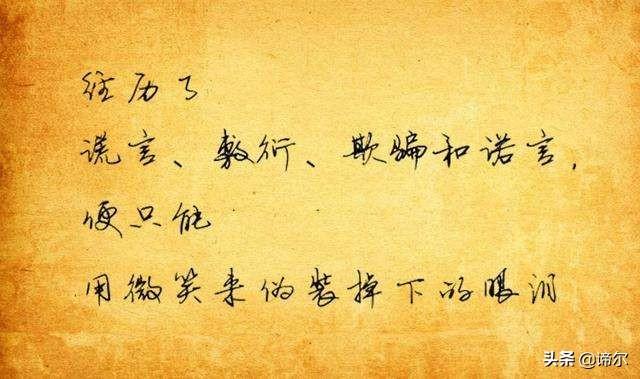 经历了
谎言、敷衍、欺骗和诺言，
便只能
用微笑来伪装掉下的眼泪
头条 @谛尔